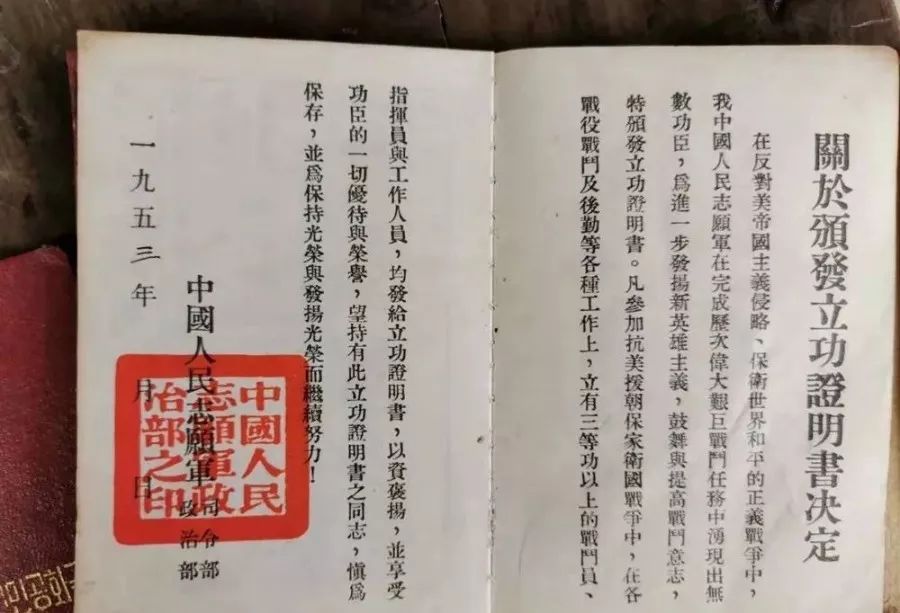 關於頒發立功證明書决定
在反對美帝國主義侵略、保衛世界和平的正義戰爭中，
我中國人民志願軍在完成歷次偉大艱巨戰鬥任務中湧現出無
數功臣，爲進一步發揚新英雄主義，鼓舞與提高戰鬥意志，
特頒發立功證明書。凡參加抗美援朝保家衛國戰爭中，在各
戰役戰鬥及後勤等各種工作上，立有三等功以上的戰鬥員、
指揮員與工作人員，均發給立功證明書，以資褒揚，並享受
功臣的一切優待與榮譽，望持有此立功證明書之同志，慎爲
保存，並爲保持光榮與發揚光榮而繼續努力！
中國人民志願軍
司令部
政治部
一九五三年 月 日
中國人民
志願軍政
治部之印
인공화국